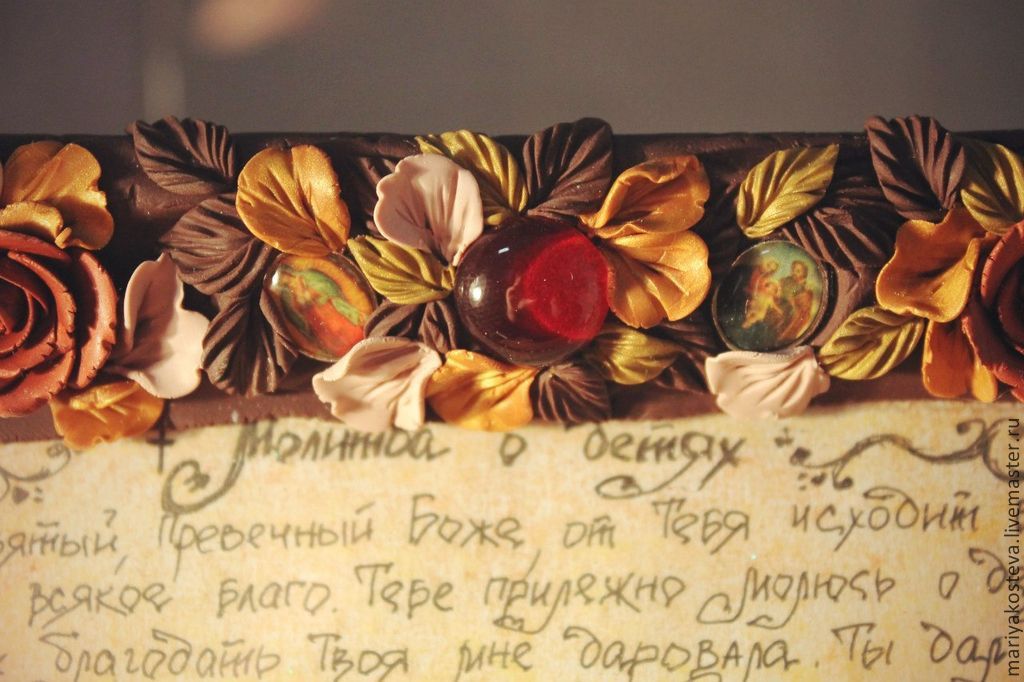 Молитва о детях
Превечный Боже, от Тебя исходит
всякое благо. Тебе прилежно молюсь о
благодать Твоя мне даровала. Ты
mariyakosteva.livemaster.ru